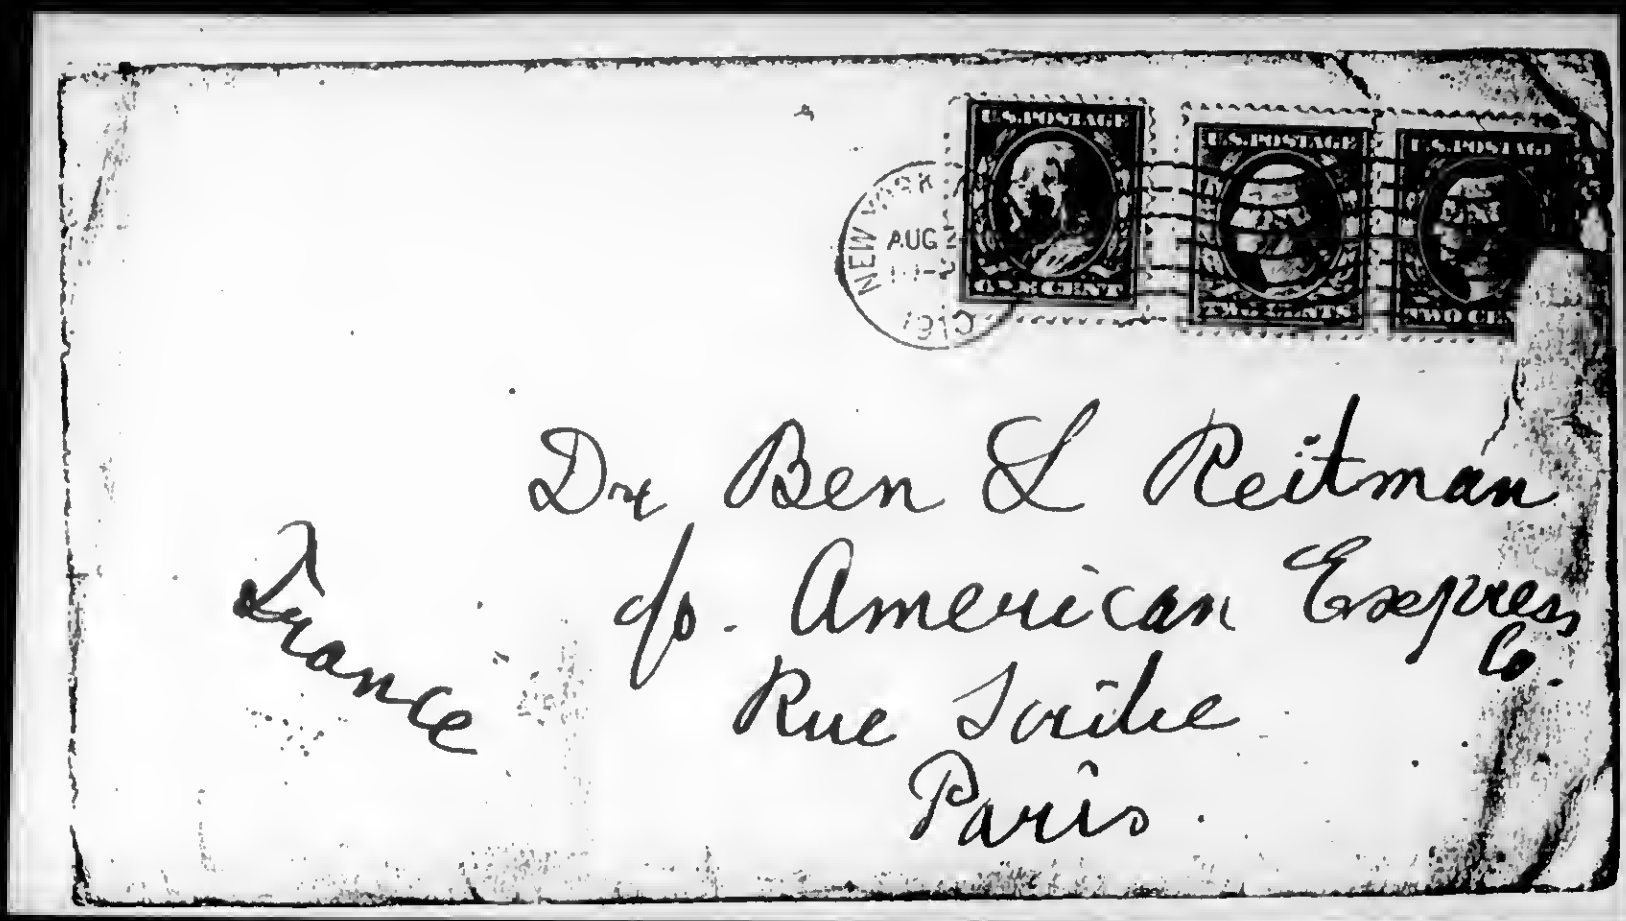 U.S.POSTAGE
ONE CENT
U.S.POSTAGE
TWO CENTS
U.S.POSTAGE
TWO
NEW YORK
AUG
1910
Dr Ben L Reitman
c/o. American Express
Co.
Rue Scribe
Paris.
France